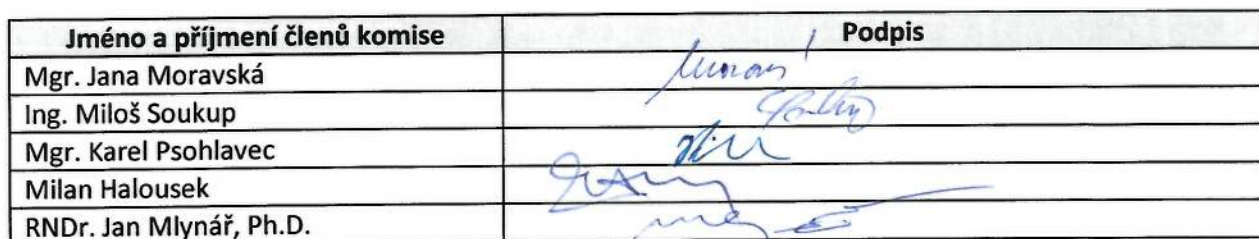 Jméno a příjmení členů komise Podpis
Mgr. Jana Moravská
Ing. Miloš Soukup
Mgr. Karel Psohlavec
Milan Halousek
RNDr. Jan Mlynář, Ph.D.